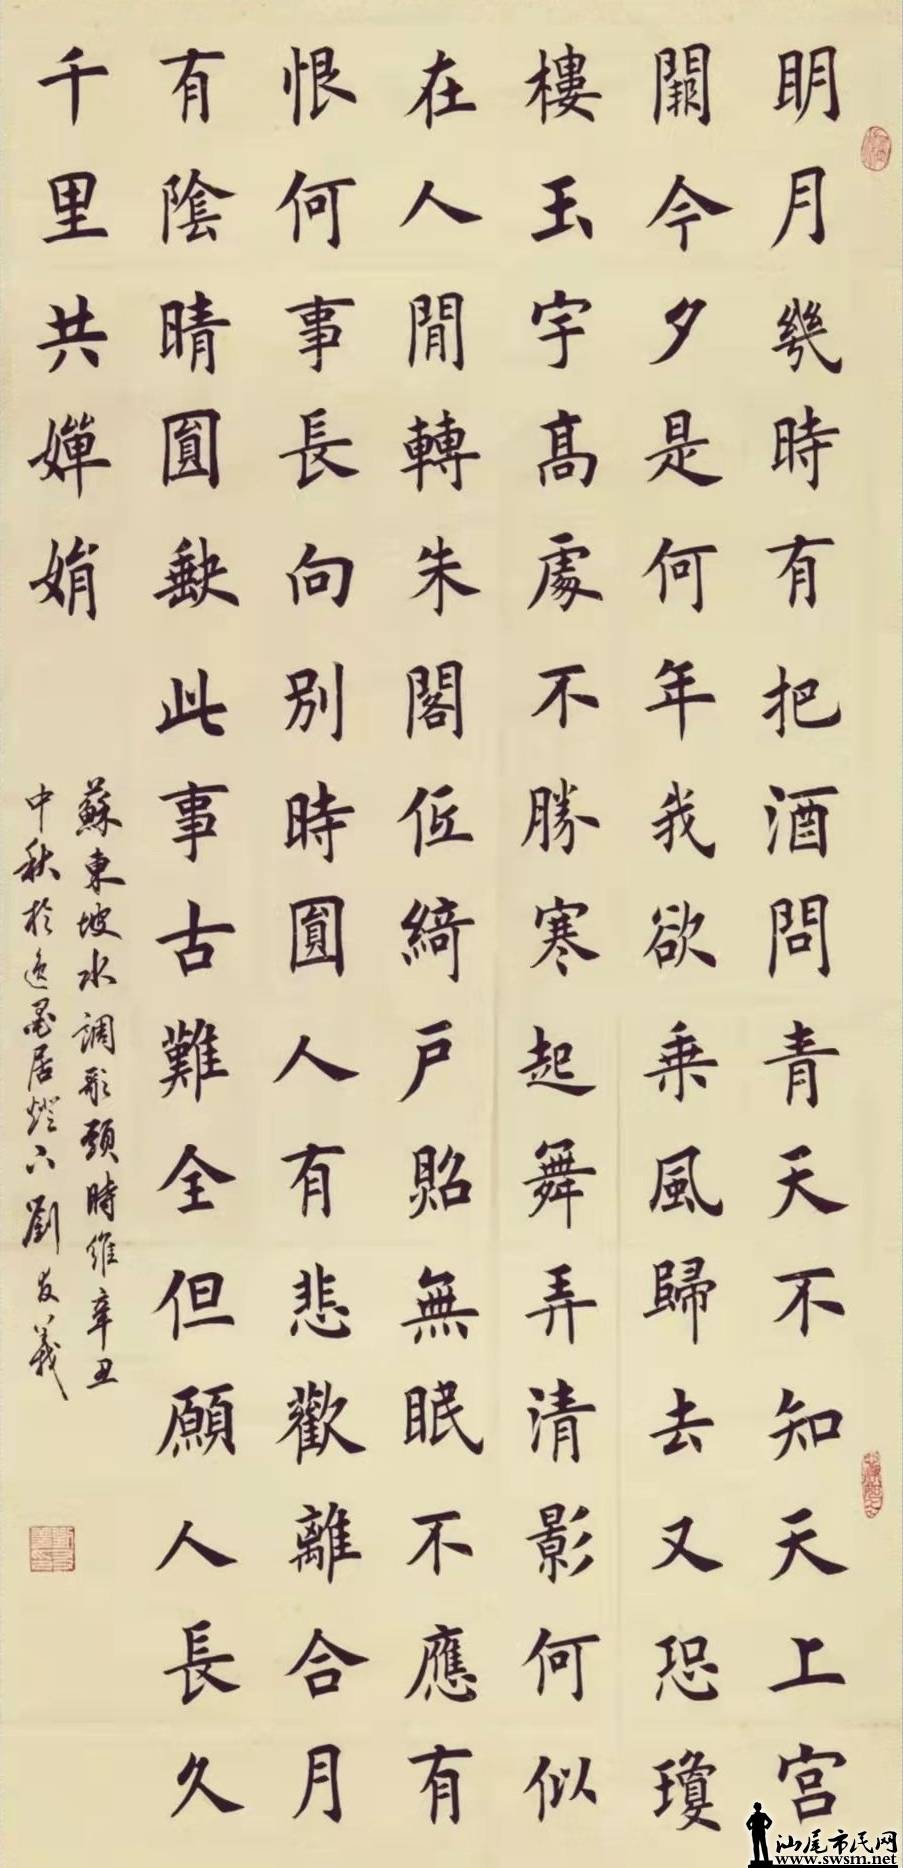 明月幾時有把酒問青天不知天上宮
闕今夕是何年我欲乘風歸去又恐瓊
樓玉宇高處不勝寒起舞弄清影何似
在人間轉朱閣低綺戶照無眠不應有
恨何事長向別時圓人有悲歡離合月
有陰晴圓缺此事古難全但願人長久
千里共嬋娟
蘇東坡水調歌頭時維辛丑
中秋於逸墨居燈下劉友義
汕尾市民网
www.swsm.net